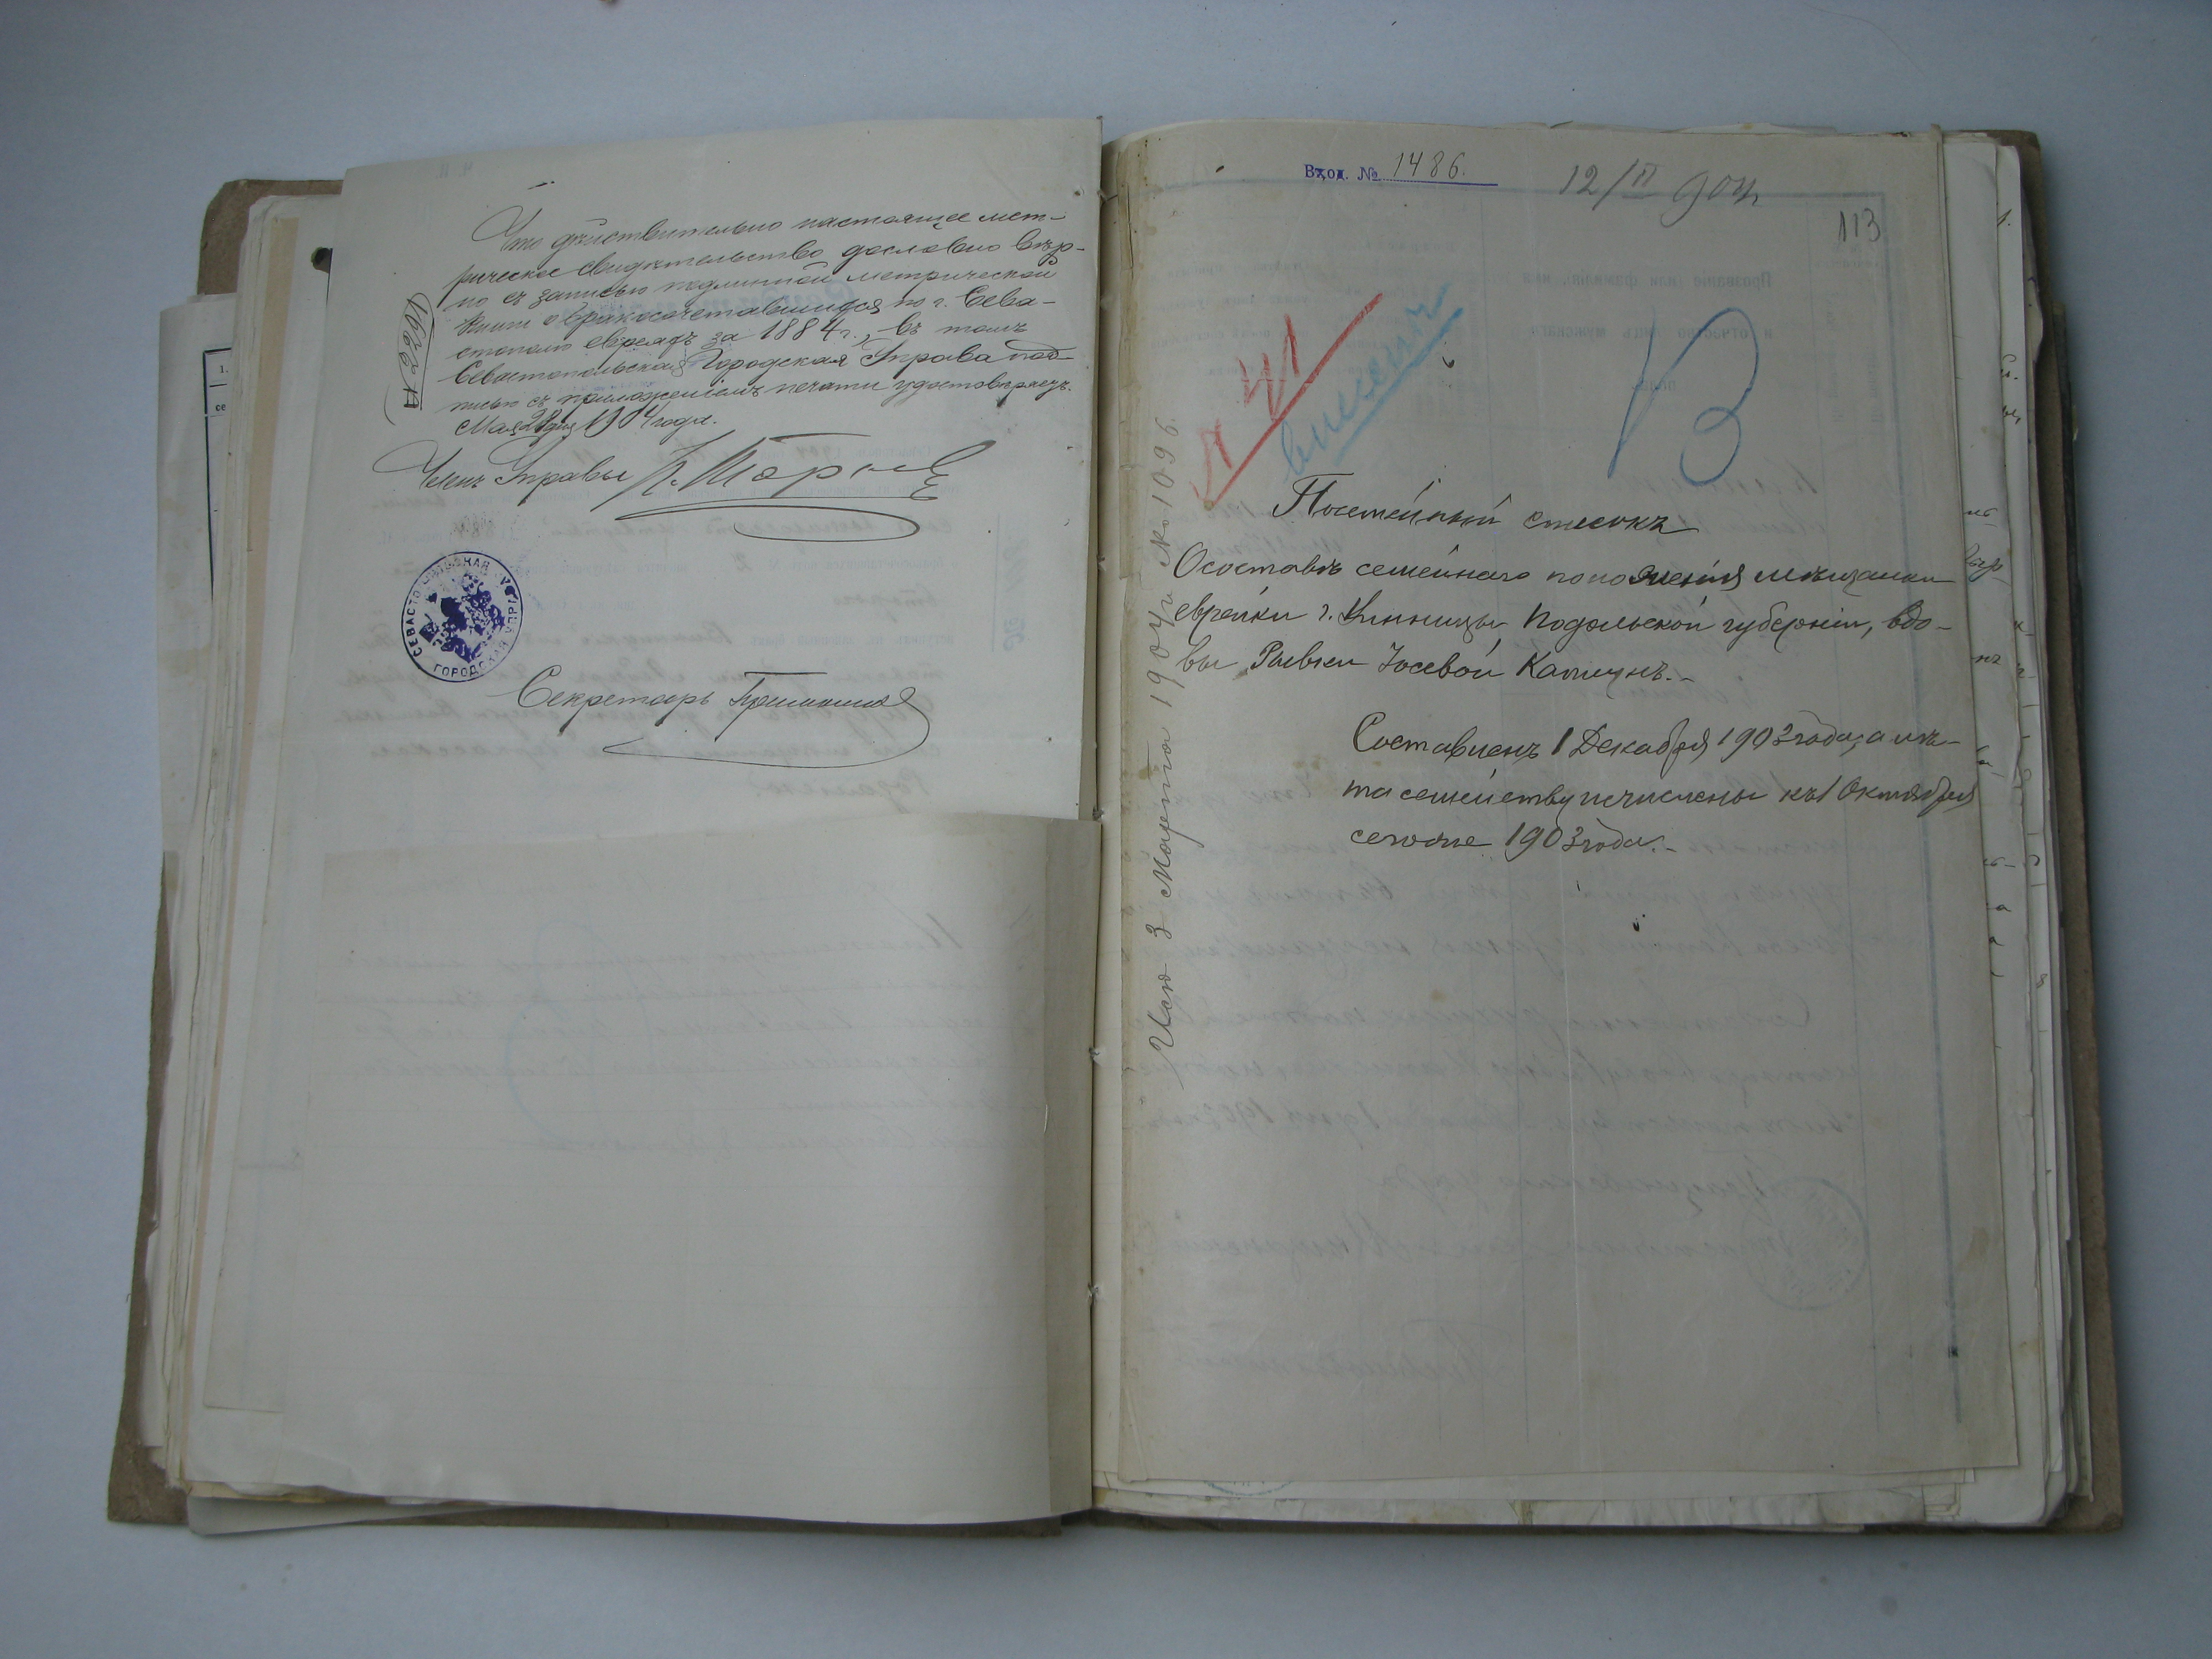 Что дѣйствительно настоящее мет-
рическое свидѣтельство дословно вѣр-
но съ записью подлинной метрической
книги о бракосочетавшихся по г. Сева-
стополю евреяхъ за 1884 г., въ томъ
Севастопольская Городская Управа под-
писью съ приложеніемъ печати удостовѣряетъ.
Мая 28 дня 1904 года.
№ 2291
Членъ Управы
СЕВАСТОПОЛЬСКАЯ ГОРОДСКАЯ УПРАВА
Секретарь
Вход. № 1486.
12/II 904 г.
113
№ 41
внесенъ
В
Посемейный списокъ
О составѣ семейнаго положенія мѣщанки
еврейки г. Винницы Подольской губерніи, вдо-
вы Рывки Іосевой Капицнъ.-
Составленъ 1 Декабря 1903 года, а лѣ-
та семейству исчислены къ 1 Октября
сего же 1903 года.-
Исп. 3 Марта 1904 г. № 1096.